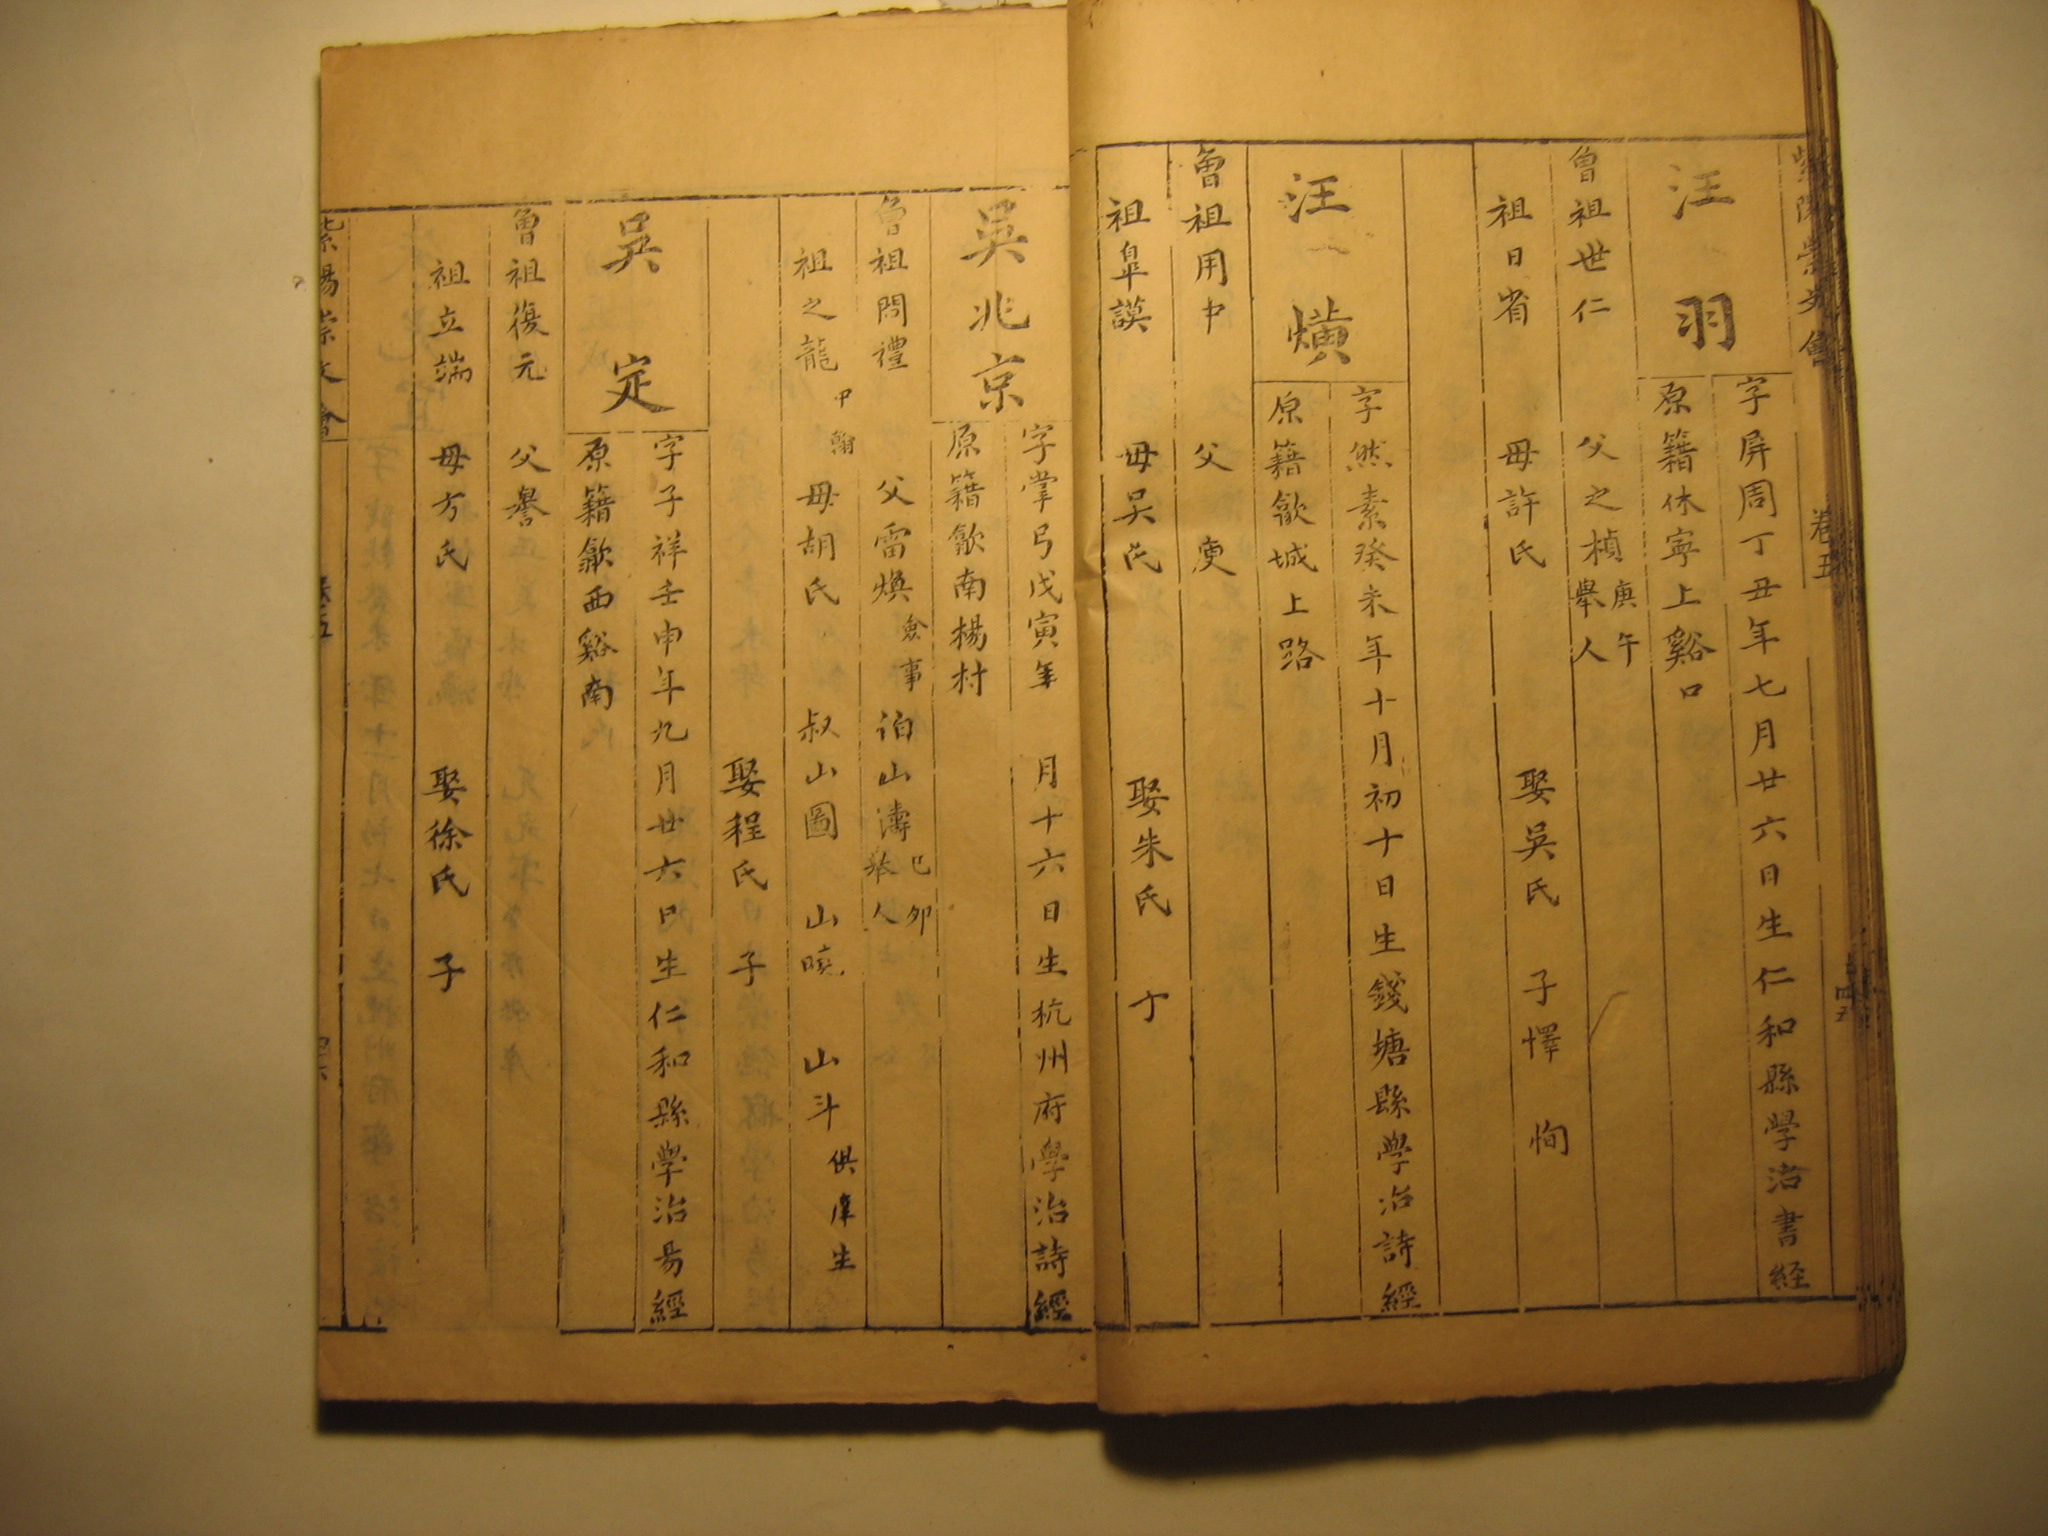 紫陽崇文會 卷五
汪羽
字屏周丁丑年七月廿六日生仁和縣學治書經
原籍休寧上谿口
曾祖世仁 父之楨庚午舉人
祖日省 母許氏 娶吳氏 子懌 恂
汪
字然素癸未年十月初十日生錢塘縣學治詩經
原籍歙城上路
曾祖用中 父更
祖皐謨 母吳氏 娶朱氏 子
吳兆京
字掌弓戊寅年 月十六日生杭州府學治詩經
原籍歙南楊村
曾祖閏禮 父雷煥僉事 伯山濤己卯舉人
祖之龍中翰 母胡氏 叔山圖 山曉 山斗 俱庠生
娶程氏 子
吳
字子祥壬申年九月廿六日生仁和縣學治易經
原籍歙西谿南
曾祖復元 父譽
祖立端 母方氏 娶徐氏 子
紫陽崇文會 卷五